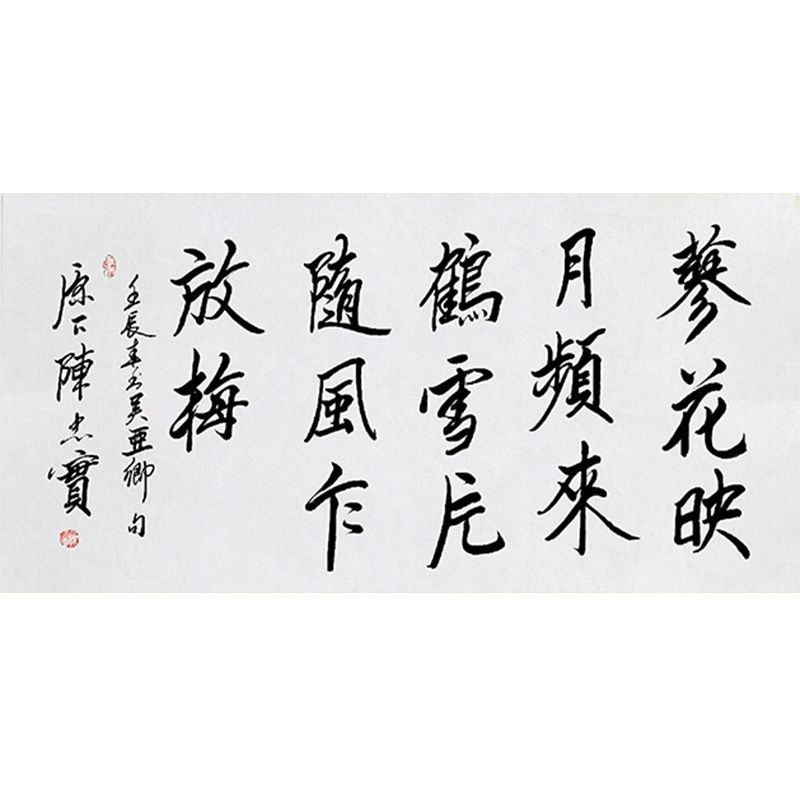 蓼花映
月頻來
鶴雪片
隨風乍
放梅
壬辰春書吳亞卿句
原下陳忠實